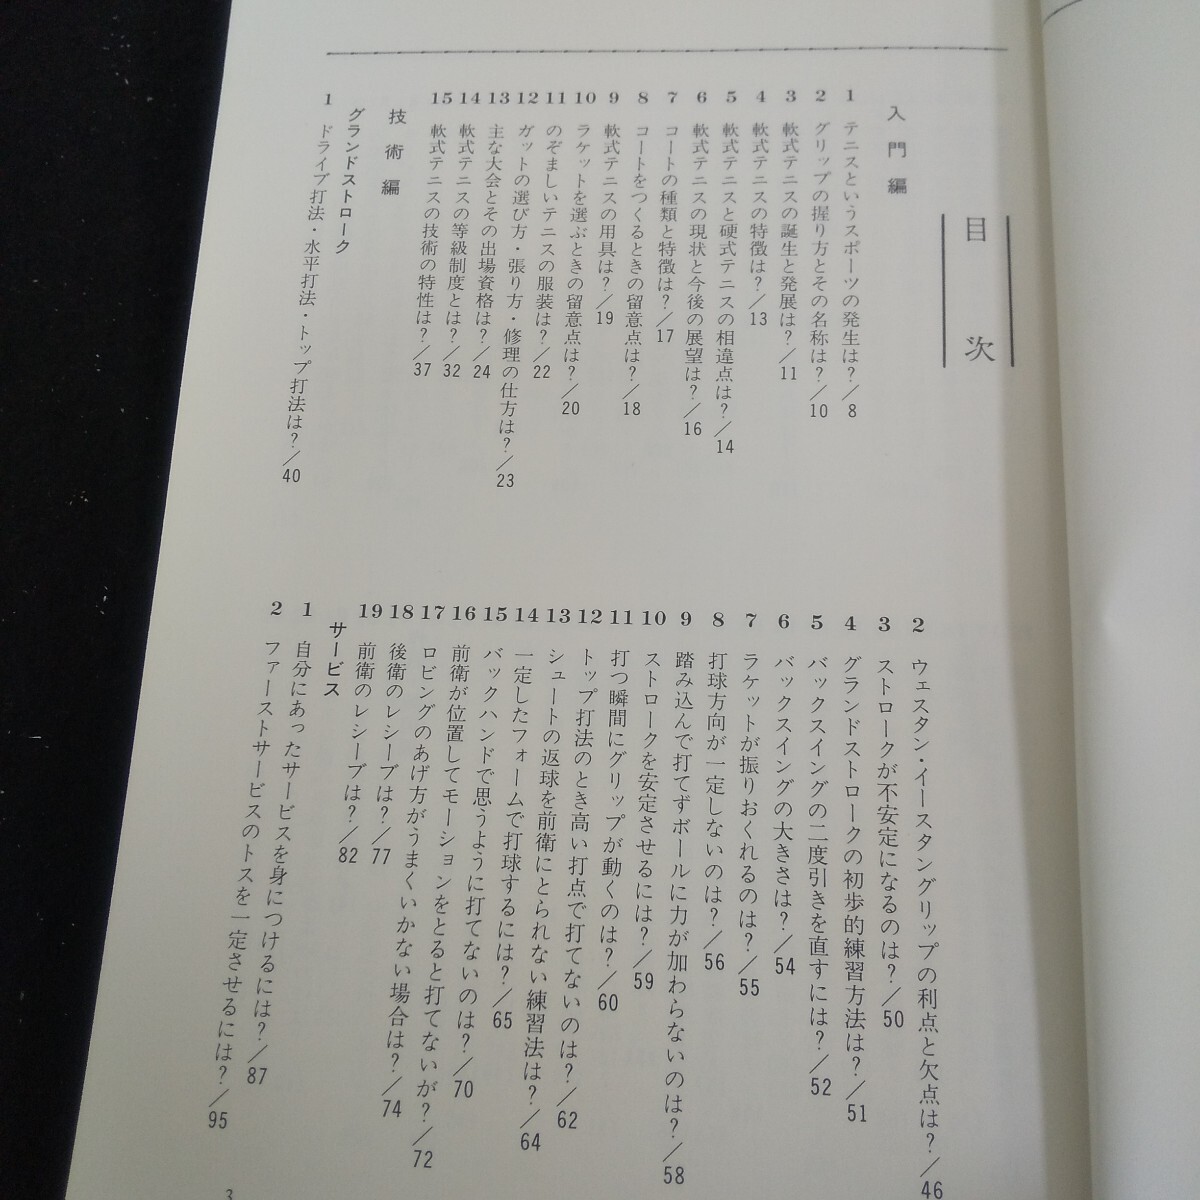 目次
入門編
1 テニスというスポーツの発生は?/8
2 グリップの握り方とその名称は?/10
3 軟式テニスの誕生と発展は?/11
4 軟式テニスの特徴は?/13
5 軟式テニスと硬式テニスの相違点は?/14
6 軟式テニスの現状と今後の展望は?/16
7 コートの種類と特徴は?/17
8 コートをつくるときの留意点は?/18
9 軟式テニスの用具は?/19
10 ラケットを選ぶときの留意点は?/20
11 のぞましいテニスの服装は?/22
12 ガットの選び方・張り方・修理の仕方は?/23
13 主な大会とその出場資格は?/24
14 軟式テニスの等級制度とは?/32
15 軟式テニスの技術の特性は?/37
技術編
グランドストローク
1 ドライブ打法・水平打法・トップ打法は?/40
2 ウェスタン・イースタングリップの利点と欠点は?/46
3 ストロークが不安定になるのは?/50
4 グランドストロークの初歩的練習方法は?/51
5 バックスイングの二度引きを直すには?/52
6 バックスイングの大きさは?/54
7 ラケットが振りおくれるのは?/55
8 打球方向が一定しないのは?/56
9 踏み込んで打てずボールに力が加わらないのは?/58
10 ストロークを安定させるには?/59
11 打つ瞬間にグリップが動くのは?/60
12 トップ打法のとき高い打点で打てないのは?/62
13 シュートの返球を前衛にとられない練習法は?/64
14 一定したフォームで打球するには?/65
15 バックハンドで思うように打てないのは?/70
16 前衛が位置してモーションをとると打てないが?/72
17 ロビングのあげ方がうまくいかない場合は?/74
18 後衛のレシーブは?/77
19 前衛のレシーブは?/82
サービス
1 自分にあったサービスを身につけるには?/87
2 ファーストサービスのトスを一定させるには?/95
3